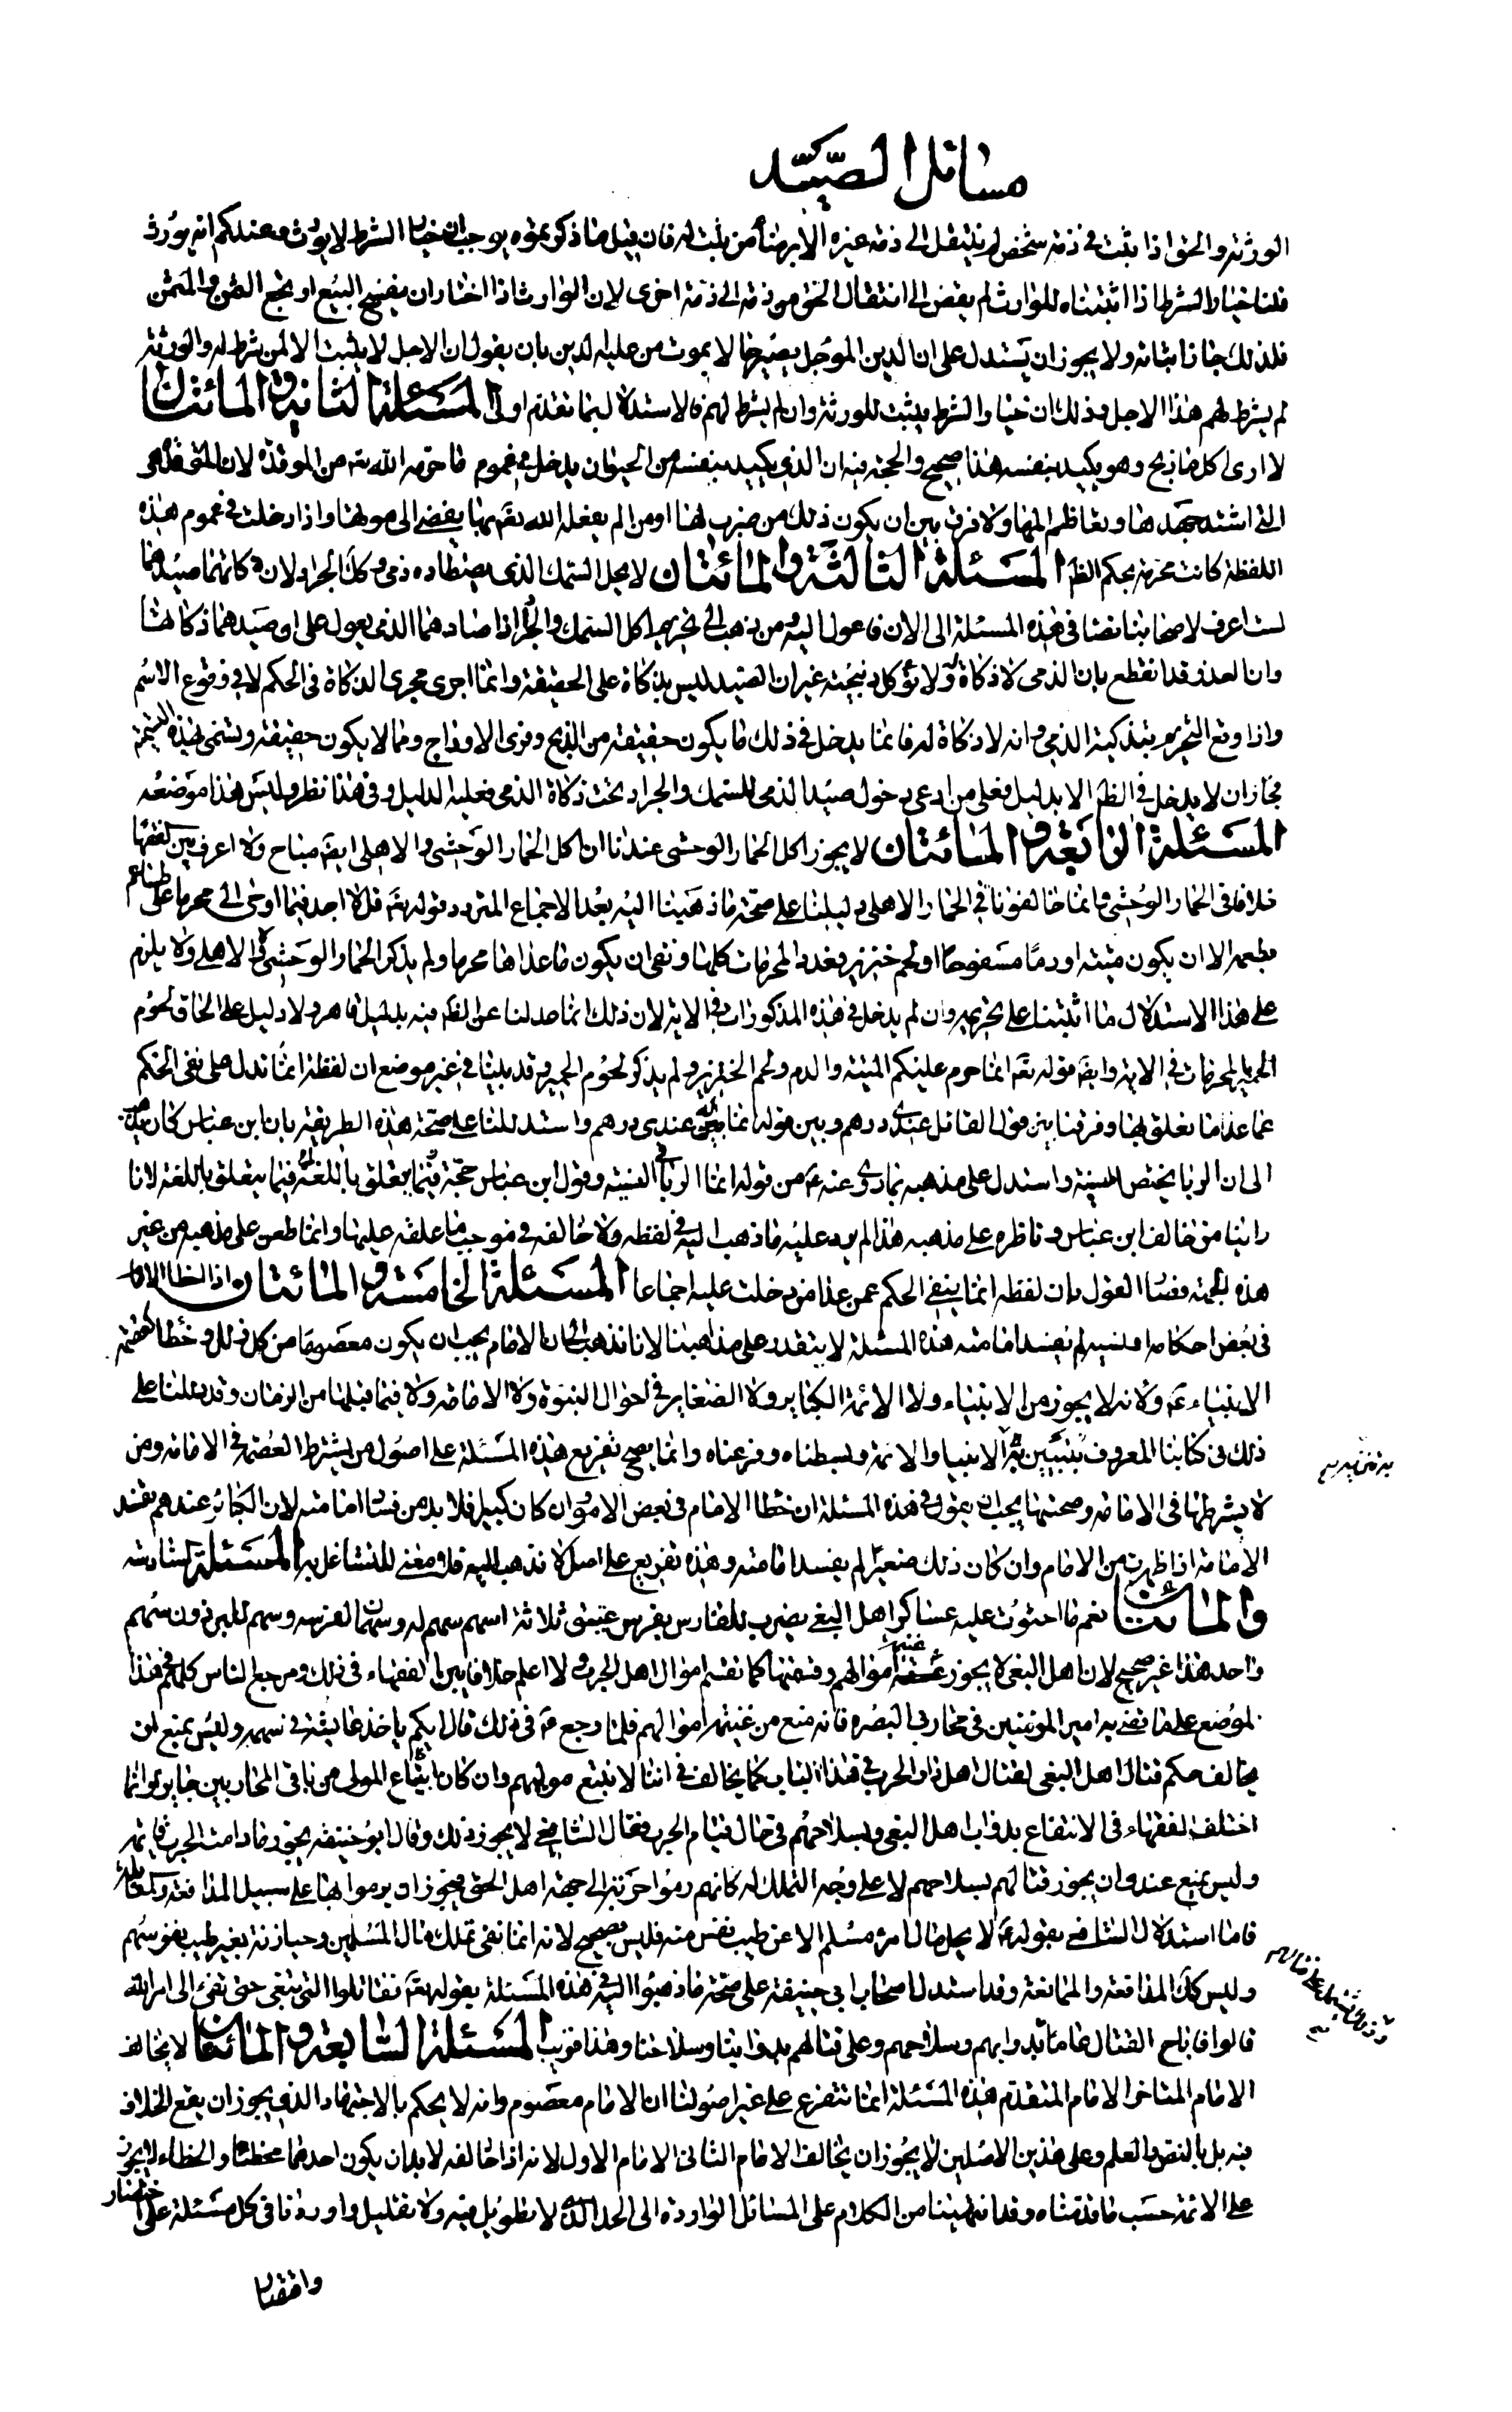 مسائل الصيد
الورثة والحق اذا يثبت في ذمة شخص لم ينتقل الى ذمة غيره الا برضا من يثبت له فان قيل ما ذكرتموه يوجب ان خيار الشرط لا يورث وعندكم انه يورث
قلنا خيار الشرط اذا اثبتناه للوارث لم يفض الى انتقال الحق من ذمة الى ذمة اخرى لان الوارث اذا اختار ان يفسخ البيع او يجمع الثمن والمثمن
فلذلك جاز اثباته ولا يجوز ان يستدل على ان الدين المؤجل يصير حالا بموت من عليه الدين بان يقول ان الاجل لا يثبت الا لمن شرط له والورثة
لم يشرط لهم هذا الاجل وذلك ان خيار الشرط يثبت للورثة وان لم يشرط لهم فالاستدلال بما تقدم اولى المسئلة الثانية والمائتان
لا ارى اكل ما ذبح وهو يكيد بنفسه هذا صحيح والحجة فيه ان الذي يكيد بنفسه من الحيوان يدخل في عموم ما حرمه الله تع من الموقوذة لان الموقوذة هي
التي اشتد جهدها وتعاظم المها ولا فرق بين ان يكون ذلك من ضرب لها او من الم يفعله الله تعه بها يفضي الى موتها واذا دخلت في عموم هذه
اللفظة كانت محرمة بحكم الظ المسئلة الثالثة والمائتان لا يحل السمك الذي يصطاده ذمي وكك الجراد لان ذكاتهما صيدهما
لست اعرف لاصحابنا نصا في هذه المسئلة الى الان فاعول اليه ومن يذهب الى تحريم اكل السمك والجراد اذا صادهما الذمي يعول على ان صيدهما ذكاتهما
وان العذر قد انقطع بان الذمي لا ذكاة له ولا تؤكل ذبيحته غير ان الصيد ليس بذكاة على الحقيقة وانما اجرى مجرى الذكاة في الحكم لا في وقوع الاسم
واذا وقع التحريم بتذكية الذمي وانه لا ذكاة له فانما يدخل في ذلك ما يكون حقيقة من الذبح وفرى الاوداج وما لا يكون حقيقة ويسمى بهذه التسمية
مجازا ان لا يدخل في الظ الا بدليل فعلى من ادعى دخول صيد الذمي للسمك والجراد تحت ذكاة الذمي فعليه الدليل وفي هذا نظر وليس هذا موضعه
المسئلة الرابعة والمائتان لا يجوز اكل الحمار الوحشي عندنا ان اكل الحمار الوحشي والاهلي ايضه مباح ولا اعرف بين الفقهاء
خلافا في الحمار الوحشي وانما خالفونا في الحمار الاهلي دليلنا على صحة ما ذهبنا اليه بعد الاجماع المتردد قوله تعه قل لا اجد فيما اوحى الي محرما على طاعم
يطعمه الا ان يكون ميتة او دما مسفوحا او لحم خنزير فعدد المحرمات كلها ونفى ان يكون ما عداها محرما ولم يذكر الحمار الوحشي ولا الاهلي ولا يلزم
على هذا الاستدلال ما اثبتنا على تحريمه وان لم يدخل في هذه المذكورات في الاية لان ذلك انما عدلنا عن الظ فيه بدليل قاهر ولا دليل على الحاق لحوم
الحمير بالمحرمات في الاية وايضه قوله تعه انما حرم عليكم الميتة والدم ولحم الخنزير ولم يذكر لحوم الحمير وقد بينا في غير موضع ان لفظة انما تدل على نفي الحكم
عما عدا ما تعلق بها وفرقنا بين قول القائل عندي درهم وبين قوله انما عندي درهم واستدللنا على صحة هذه الطريقة بان ابن عباس كان يذهب
الى ان الربا يختص النسيئة واستدل على مذهبه بما روى عنه ع من قوله انما الربا في النسيئة وقول ابن عباس حجة فيما يتعلق باللغة فيما يتعلق باللغة لانا
راينا من خالف ابن عباس وناظره على مذهبه هذا لم يرد عليه ما ذهب اليه في لفظه ولا خالفه في موجب ما علقه عليها وانما طعن على مذهبه من غير
هذه الجهة فصار القول بان لفظة انما ينفي الحكم عمن عدا من دخلت عليه اجماعا المسئلة الخامسة والمائتان واذا اخطا الامام
في بعض احكامه او نسيه لم يفسد امامته هذه المسئلة لا يتقدر على مذاهبنا لانا نذهب الى ان الامام يجب ان يكون معصوما من كل زلل وخطا كعصمة
الانبياء ع ولانه لا يجوز من الانبياء ولا الائمة الكبائر ولا الصغاير في احوال النبوة ولا الامامة ولا فيما قبلها من الزمان وقد دللنا على
ذلك في كتابنا المعروف بتنزيه الانبيا والائمة وبسطناه وفرعناه وانما يصح تفريع هذه المسئلة على اصول من يشترط العصمة في الامامة ومن
لا يشرطها في الامامة وصحتها يجب ان يقول في هذه المسئلة ان خطا الامام في بعض الامور ان كان كبيرا فلابد من فساد امامته لان الكبائر عندهم تفسد
الامامة اذا ظهرت من الامام وان كان ذلك صغيرا لم يفسد امامته وهذه تفريع على اصل لا نذهب اليه فلا معنى للتشاغل به المسئلة السادسة
والمائتان نغم ما احتوت عليه عساكر اهل البغي يضرب للفارس بفرس عتيق ثلاثة اسهم سهم له وسهمان لفرسه وسهم للبرذون سهم
واحد هذا غير صحيح لان اهل البغي لا يجوز غنيمة اموالهم وقسمتها كما تقسم اموال اهل الحرب ولا اعلم خلافا بين الفقهاء في ذلك ومرجع الناس كلهم في هذا
الموضع على ما قضى به امير المؤمنين في محاربي البصرة فانه منع من غنيمة اموالهم فلما روجع ع في ذلك قال ايكم ياخذ عايشة في سهمه وليس يمتنع ان
يخالف حكم قتال اهل البغي لقتال اهل دار الحرب في هذا الباب كما يخالف في اننا لا نتبع موليهم وان كان اتباع المولى من باقي المحاربين جايزا وانما
اختلف الفقهاء في الانتفاع بدواب اهل البغي وبسلاحهم في حال قيام الحرب فقال الشافعي لا يجوز ذلك وقال ابو حنيفة يجوز ما دامت الحرب قائمة
وليس يمتنع عندي ان يجوز قتالهم بسلاحهم لا على وجه التملك له كانهم رموا حربة الى جهة اهل الحق فيجوز ان يرموا بها على سبيل المدافعة والمقابلة
فاما استدلال الشافعي بقوله ع لا يحل مال امرء مسلم الا عن طيب نفس منه فليس بصحيح لانه انما نفى تملك مال المسلمين وحيازته بغير طيب نفوسهم
وليس كك المدافعة والممانعة وقد استدل اصحاب ابي حنيفة على صحة ما ذهبوا اليه في هذه المسئلة بقوله تعه فقاتلوا التي تبغي حتى تفئ الى امر الله
قالوا فاباح القتال عاما بدوابهم وسلاحهم وعلى قتالهم بدوابنا وسلاحنا وهذا قريب المسئلة السابعة والمائتان لا يخالف
الامام المتاخر الامام المتقدم هذه المسئلة انما تتفرع على غير اصولنا ان الامام معصوم وانه لا يحكم بالاجتهاد الذي يجوز ان يقع الخلاف
فيه بل بالنص والعلم وعلى هذين الاصلين لا يجوز ان يخالف الامام الثاني الامام الاول لانه اذا خالفه لابد ان يكون احدهما مخطئا والخطاء لا يجوز
على الائمة حسب ما قدمناه وقد انتهينا من الكلام على المسائل الواردة الى الحد الذي لا تطويل فيه ولا تقليل واوردنا في كل مسئلة على اختصار
وافقنا